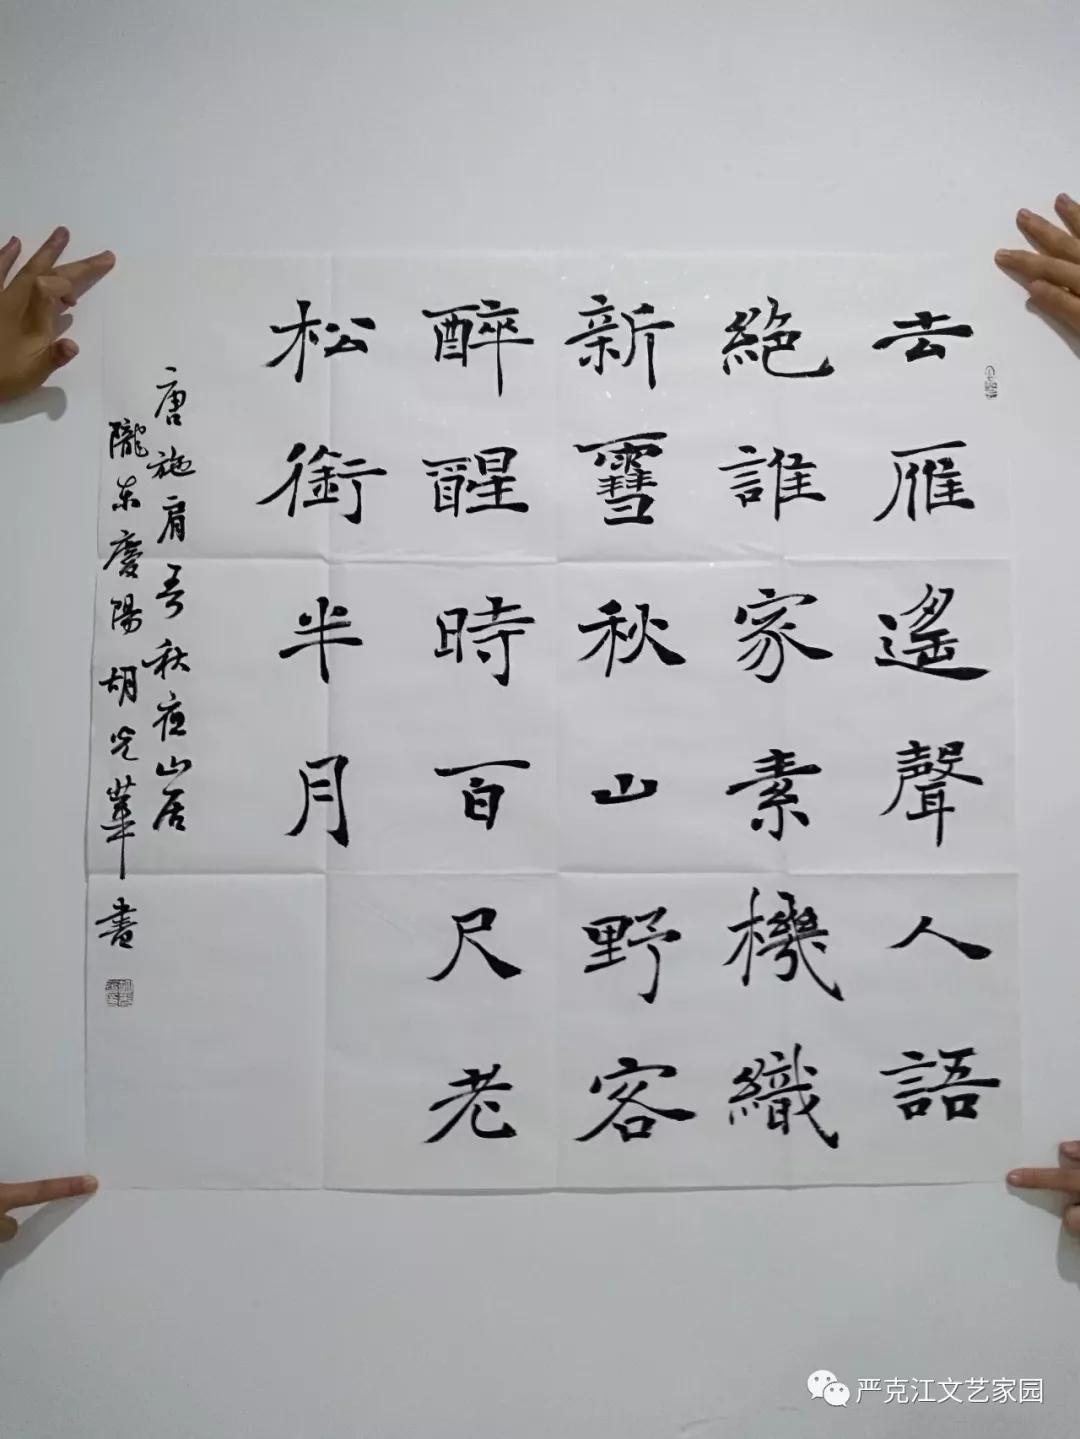 去雁遙聲人語
絕誰家素機織
新雪秋山野客
醉醒時百尺老
松銜半月
唐施肩吾秋夜山居
隴東慶陽胡光華書
严克江文艺家园